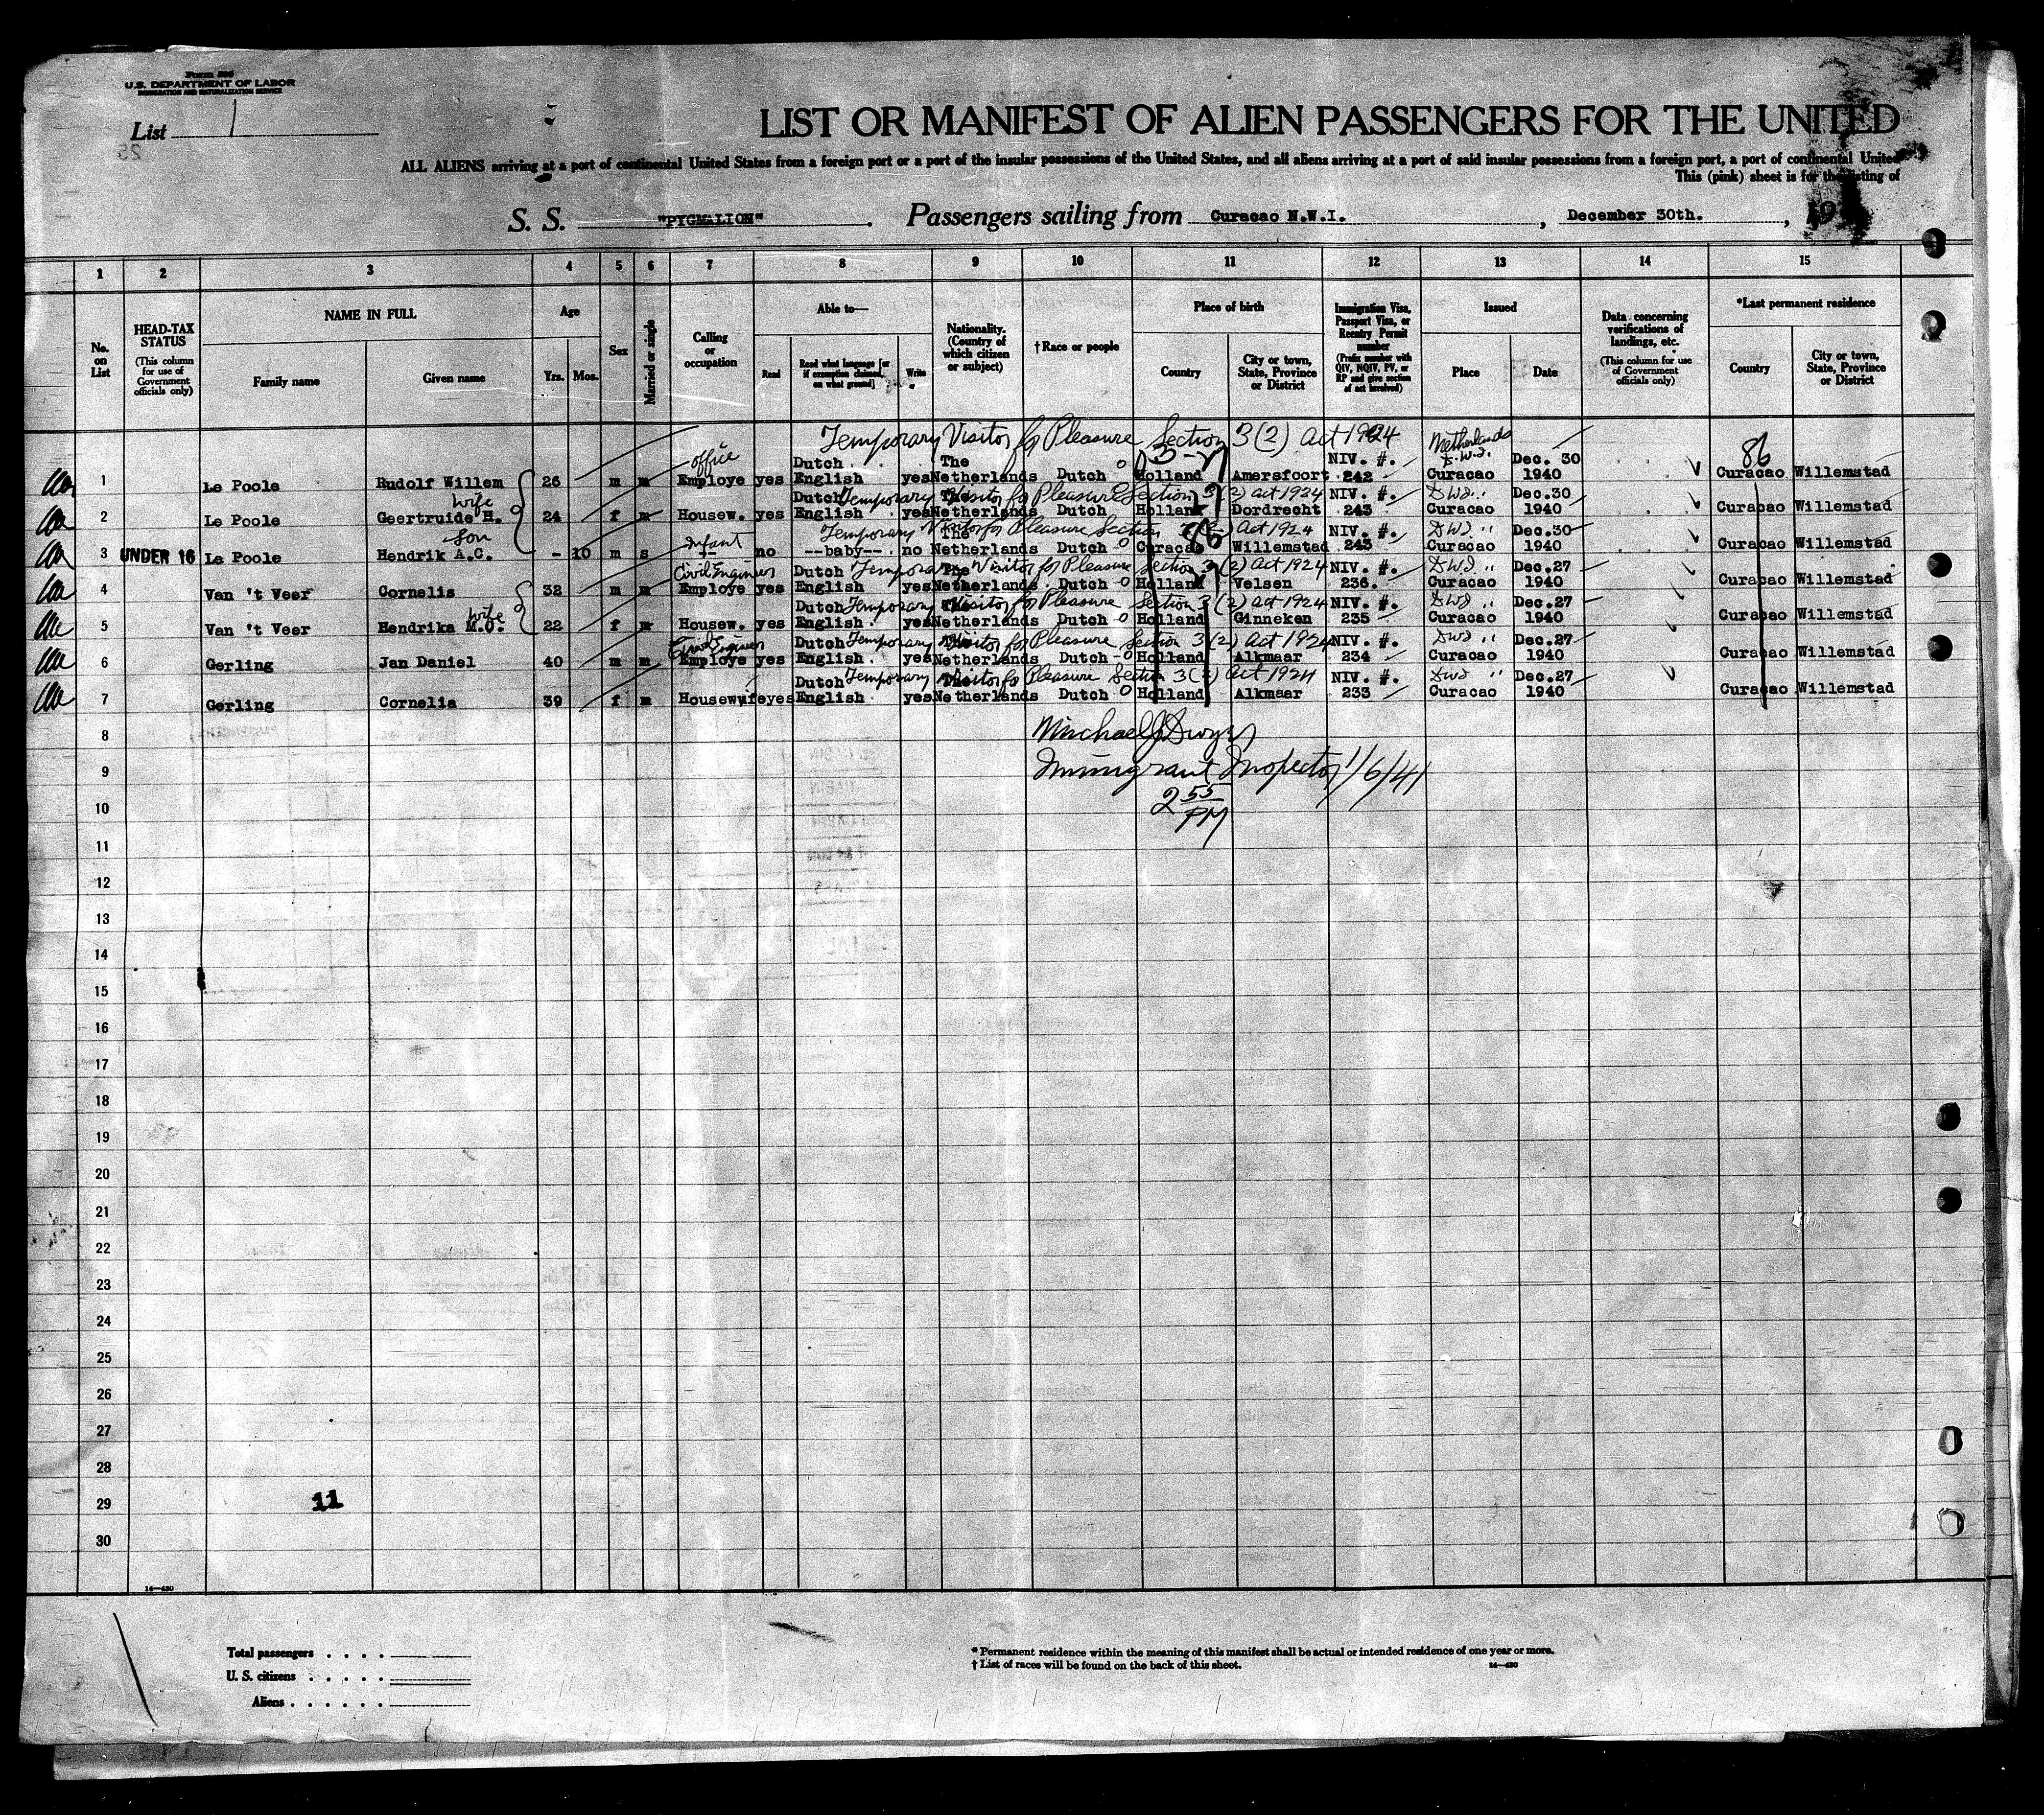 Form 500
U.S. DEPARTMENT OF LABOR
IMMIGRATION AND NATURALIZATION SERVICE
List 1
LIST OR MANIFEST OF ALIEN PASSENGERS FOR THE UNITED
ALL ALIENS arriving at a port of continental United States from a foreign port or a port of the insular possessions of the United States, and all aliens arriving at a port of said insular possessions from a foreign port, a port of continental United
This (pink) sheet is for the listing of
S. S. "PYGMALION" Passengers sailing from Curacao N.W.I., December 30th., 19
1 2 3 4 5 6 7 8 9 10 11 12 13 14 15
No. on List
HEAD-TAX STATUS (This column for use of Government officials only)
NAME IN FULL
Family name Given name
Age
Yrs. Mos.
Sex
Married or single
Calling or occupation
Able to—
Read Read what language [or if exemption claimed, on what ground] Write
Nationality. (Country of which citizen or subject)
† Race or people
Place of birth
Country City or town, State, Province or District
Immigration Visa, Passport Visa, or Reentry Permit number (Prefix number with QIV, NQIV, PV, or RP and give section of act involved)
Issued
Place Date
Data concerning verifications of landings, etc. (This column for use of Government officials only)
*Last permanent residence
Country City or town, State, Province or District
Temporary Visitor for Pleasure Section 3(2) Act 1924 Netherlands
office Dutch The NIV. #. D.W.I. Dec. 30 86
1 Le Poole Rudolf Willem 26 m m Employe yes English yes Netherlands Dutch Holland Amersfoort 242 Curacao 1940 Curacao Willemstad
wife Dutch Temporary Visitor for Pleasure Section 3(2) act 1924 NIV. #. DWI " Dec.30
2 Le Poole Geertruide H. 24 f m Housew. yes English yes Netherlands Dutch Holland Dordrecht 243 Curacao 1940 Curacao Willemstad
son Infant Temporary Visitor for Pleasure Section 3(2) Act 1924 NIV. #. DWI " Dec.30
3 UNDER 16 Le Poole Hendrik A.C. - 10 m s -- no --baby-- no Netherlands Dutch Curacao 86 Willemstad 243 Curacao 1940 Curacao Willemstad
Civil Engineer Dutch Temporary Visitor for Pleasure Section 3(2) Act 1924 NIV. #. DWI " Dec.27
4 Van 't Veer Cornelis 32 m m Employe yes English yes Netherlands Dutch Holland Velsen 236. Curacao 1940 Curacao Willemstad
wife Dutch Temporary Visitor for Pleasure Section 3(2) act 1924 NIV. #. DWI " Dec.27
5 Van 't Veer Hendrika M.J. 22 f m Housew. yes English yes Netherlands Dutch Holland Ginneken 235 Curacao 1940 Curacao Willemstad
Civil Engineer Dutch Temporary Visitor for Pleasure Section 3(2) Act 1924 NIV. #. DWI " Dec.27
6 Gerling Jan Daniel 40 m m Employe yes English yes Netherlands Dutch Holland Alkmaar 234 Curacao 1940 Curacao Willemstad
Dutch Temporary Visitor for Pleasure Section 3(2) act 1924 NIV. #. DWI " Dec.27
7 Gerling Cornelia 39 f m Housewife yes English yes Netherlands Dutch Holland Alkmaar 233 Curacao 1940 Curacao Willemstad
8 Michael J. Dwyer
9 Immigrant Inspector 1/6/41
10 2 55 PM
11
12
13
14
15
16
17
18
19
20
21
22
23
24
25
26
27
28
29 11
30
14—430
Total passengers
U. S. citizens
Aliens
* Permanent residence within the meaning of this manifest shall be actual or intended residence of one year or more.
† List of races will be found on the back of this sheet.
14—430